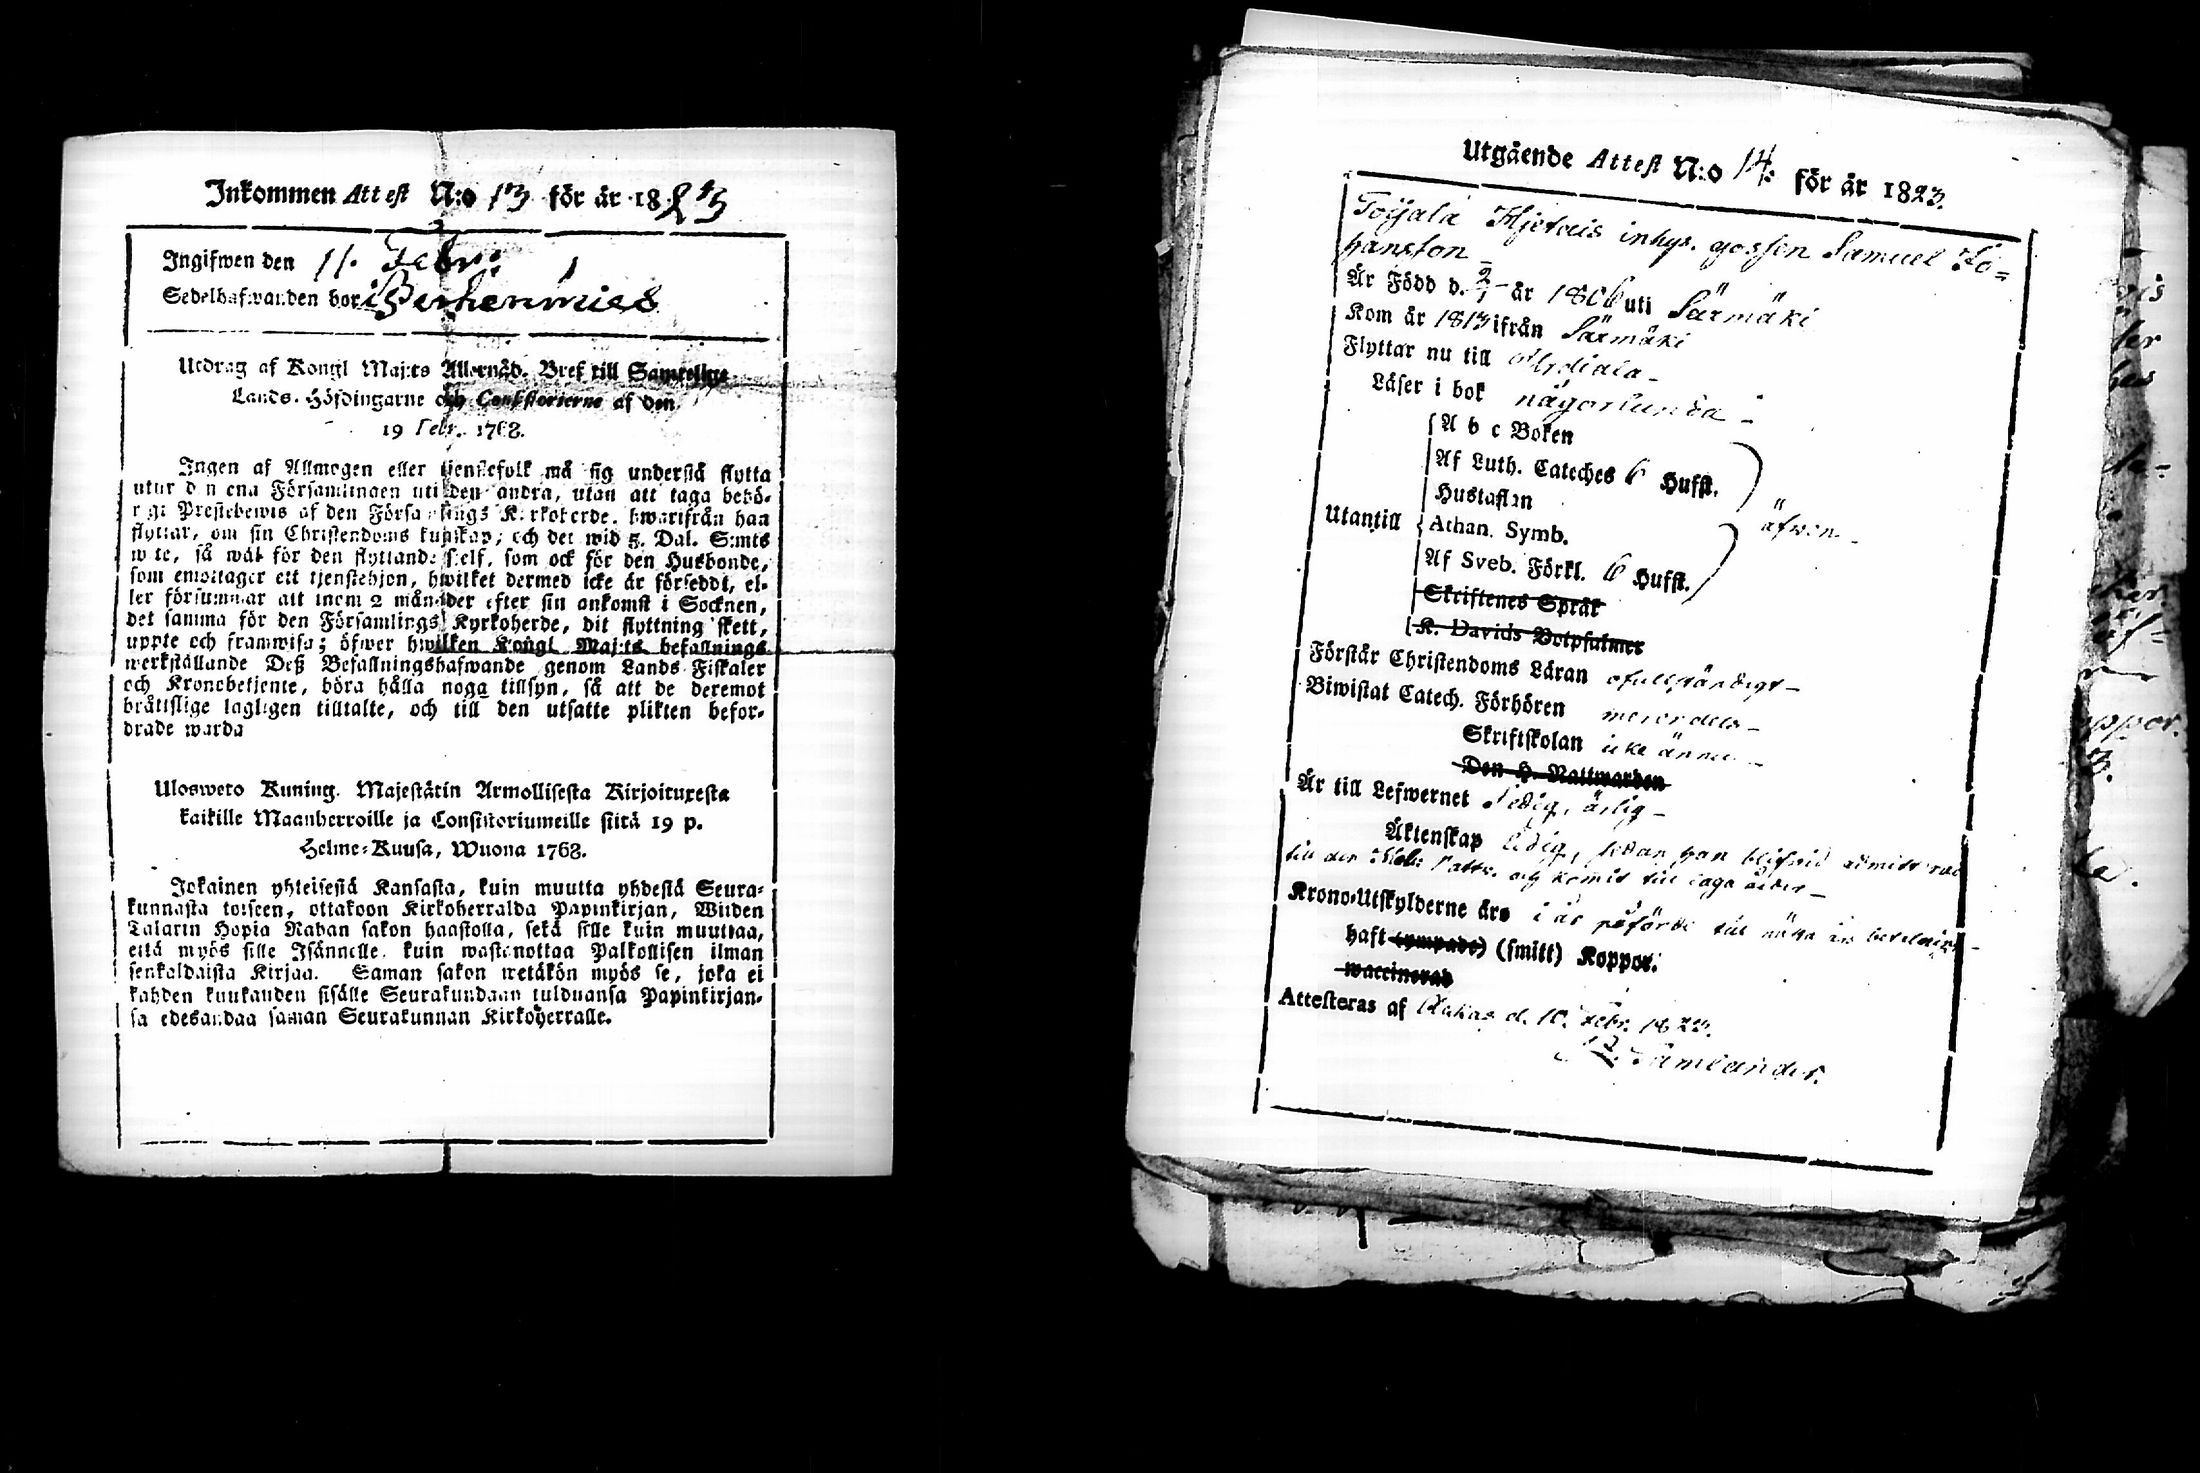 Inkommen Attest N:o 13 för år 1823
Ingifwen den 11. Febr:
Sedelhafwanden bor i
Utdrag af Kongl Maj:ts Allernåd. Bref till Samtellige
Lands-Höfdingarne och Consistorierne af den
19 Febr. 1768.
Ingen af Allmogen eller tjenstefolk må sig understå flytta
utur den ena Församlingen uti den andra, utan att taga behö-
rigt Prestebewis af den Församlings Kyrkoherde, hwarifrån han
flyttar, om sin Christendoms kunskap; och det wid 5. Dal. S:mts
wite, så wäl för den flyttande sielf, som ock för den Husbonde,
som emottager ett tjenstehjon, hwilket dermed icke är försedt, el-
ler försummar att inom 2 månader efter sin ankomst i Socknen,
det samma för den Församlings Kyrkoherde, dit flyttning skett,
uppte och framwisa; öfwer hwilken Kongl Maj:ts befallnings
werkställande Deß Befallningshafwande genom Lands Fiskaler
och Kronobetjente, böra hålla noga tillsyn, så att de deremot
bråttslige lagligen tilltalte, och till den utsatte plikten befor-
drade warda
Ulosweto Kuning. Majestätin Armollisesta Kirjoituxesta
kaikille Maanherroille ja Consistoriumeille siitä 19 p.
Helme-Kuusa, Wuona 1768.
Jokainen yhteisestä Kansasta, kuin muutta yhdestä Seura-
kunnasta toiseen, ottakoon Kirkoherralda Papinkirjan, Wijden
Talarin Hopia Rahan sakon haastolla, sekä sille kuin muuttaa,
että myös sille Isännelle, kuin wastanottaa Palkollisen ilman
senkaldaista Kirjaa. Saman sakon wetäkön myös se, joka ei
kahden kuukauden sisälle Seurakundaan tulduansa Papinkirjan-
sa edesandaa saman Seurakunnan Kirkoherralle.
Utgående Attest N:o 14. för år 1823.
Toijala Hjetais inhys. gossen Samuel Jo=
hansson
Är Född d. 2/1 år 1806 uti Särmäki
Kom år 1813 ifrån Särmäki
Flyttar nu till
Läser i bok någorlunda
A b c Boken
Af Luth. Cateches 6 Hufst.
Hustaflan
Utantill Athan. Symb. äfwen
Af Sveb. Förkl. 6 Hufst.
Skriftenes Språk
K. Davids Botpsalmer
Förstår Christendoms Läran ofullständigt
Biwistat Catech. Förhören merendels
Skriftskolan icke ännu
Den H. Nattwarden
Är till Lefwernet sedig, ärlig
Äktenskap ledig, sedan han blifwid admitterad
till den Hel: Nattv. och komit till laga ålder
Krono-Utskylderne äro i år påförde till
haft (ympade) (smitt) Koppor.
waccinerad
Attesteras af d. 10. Febr. 1823.